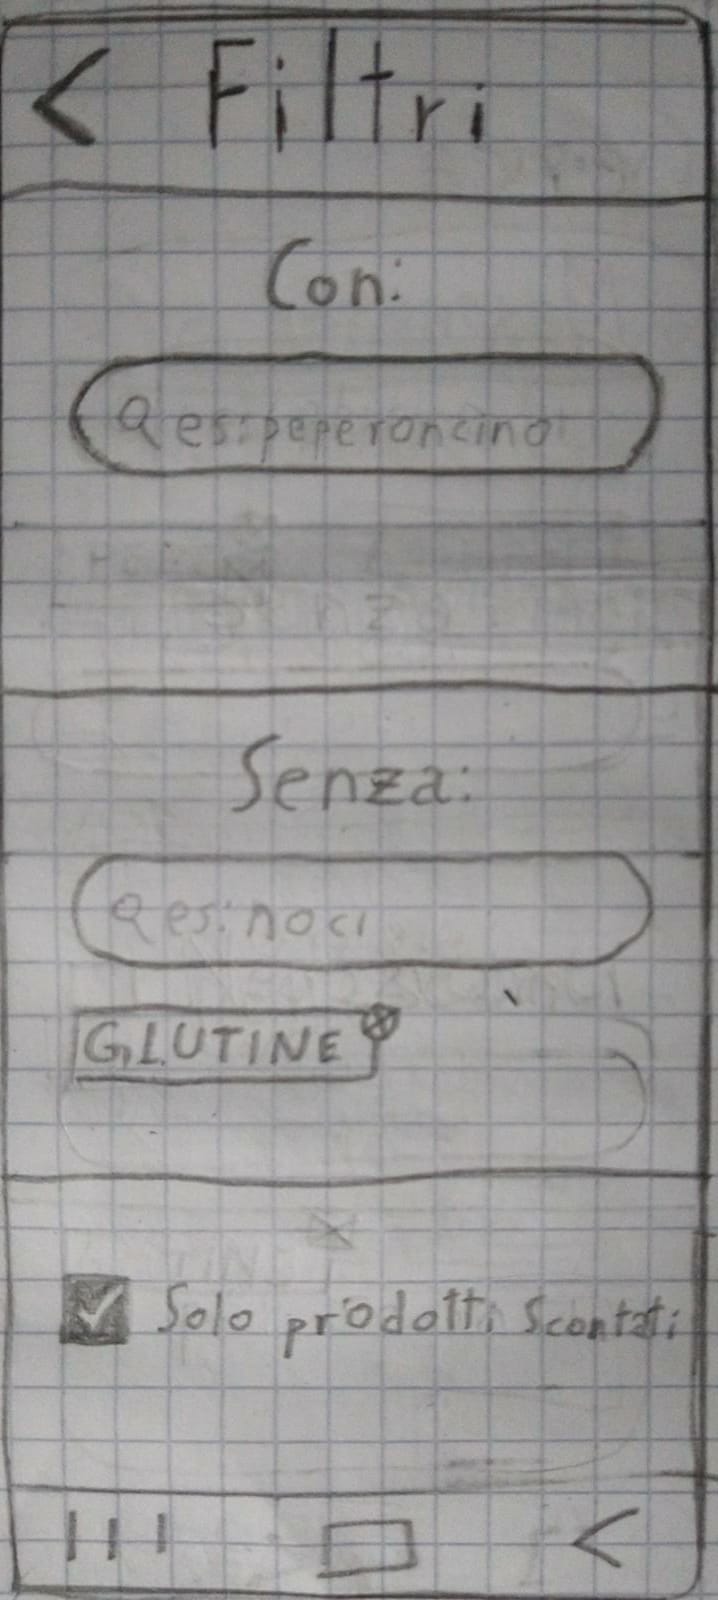 < Filtri
Con:
es: peperoncino
Senza:
es: noci
GLUTINE
Solo prodotti Scontati